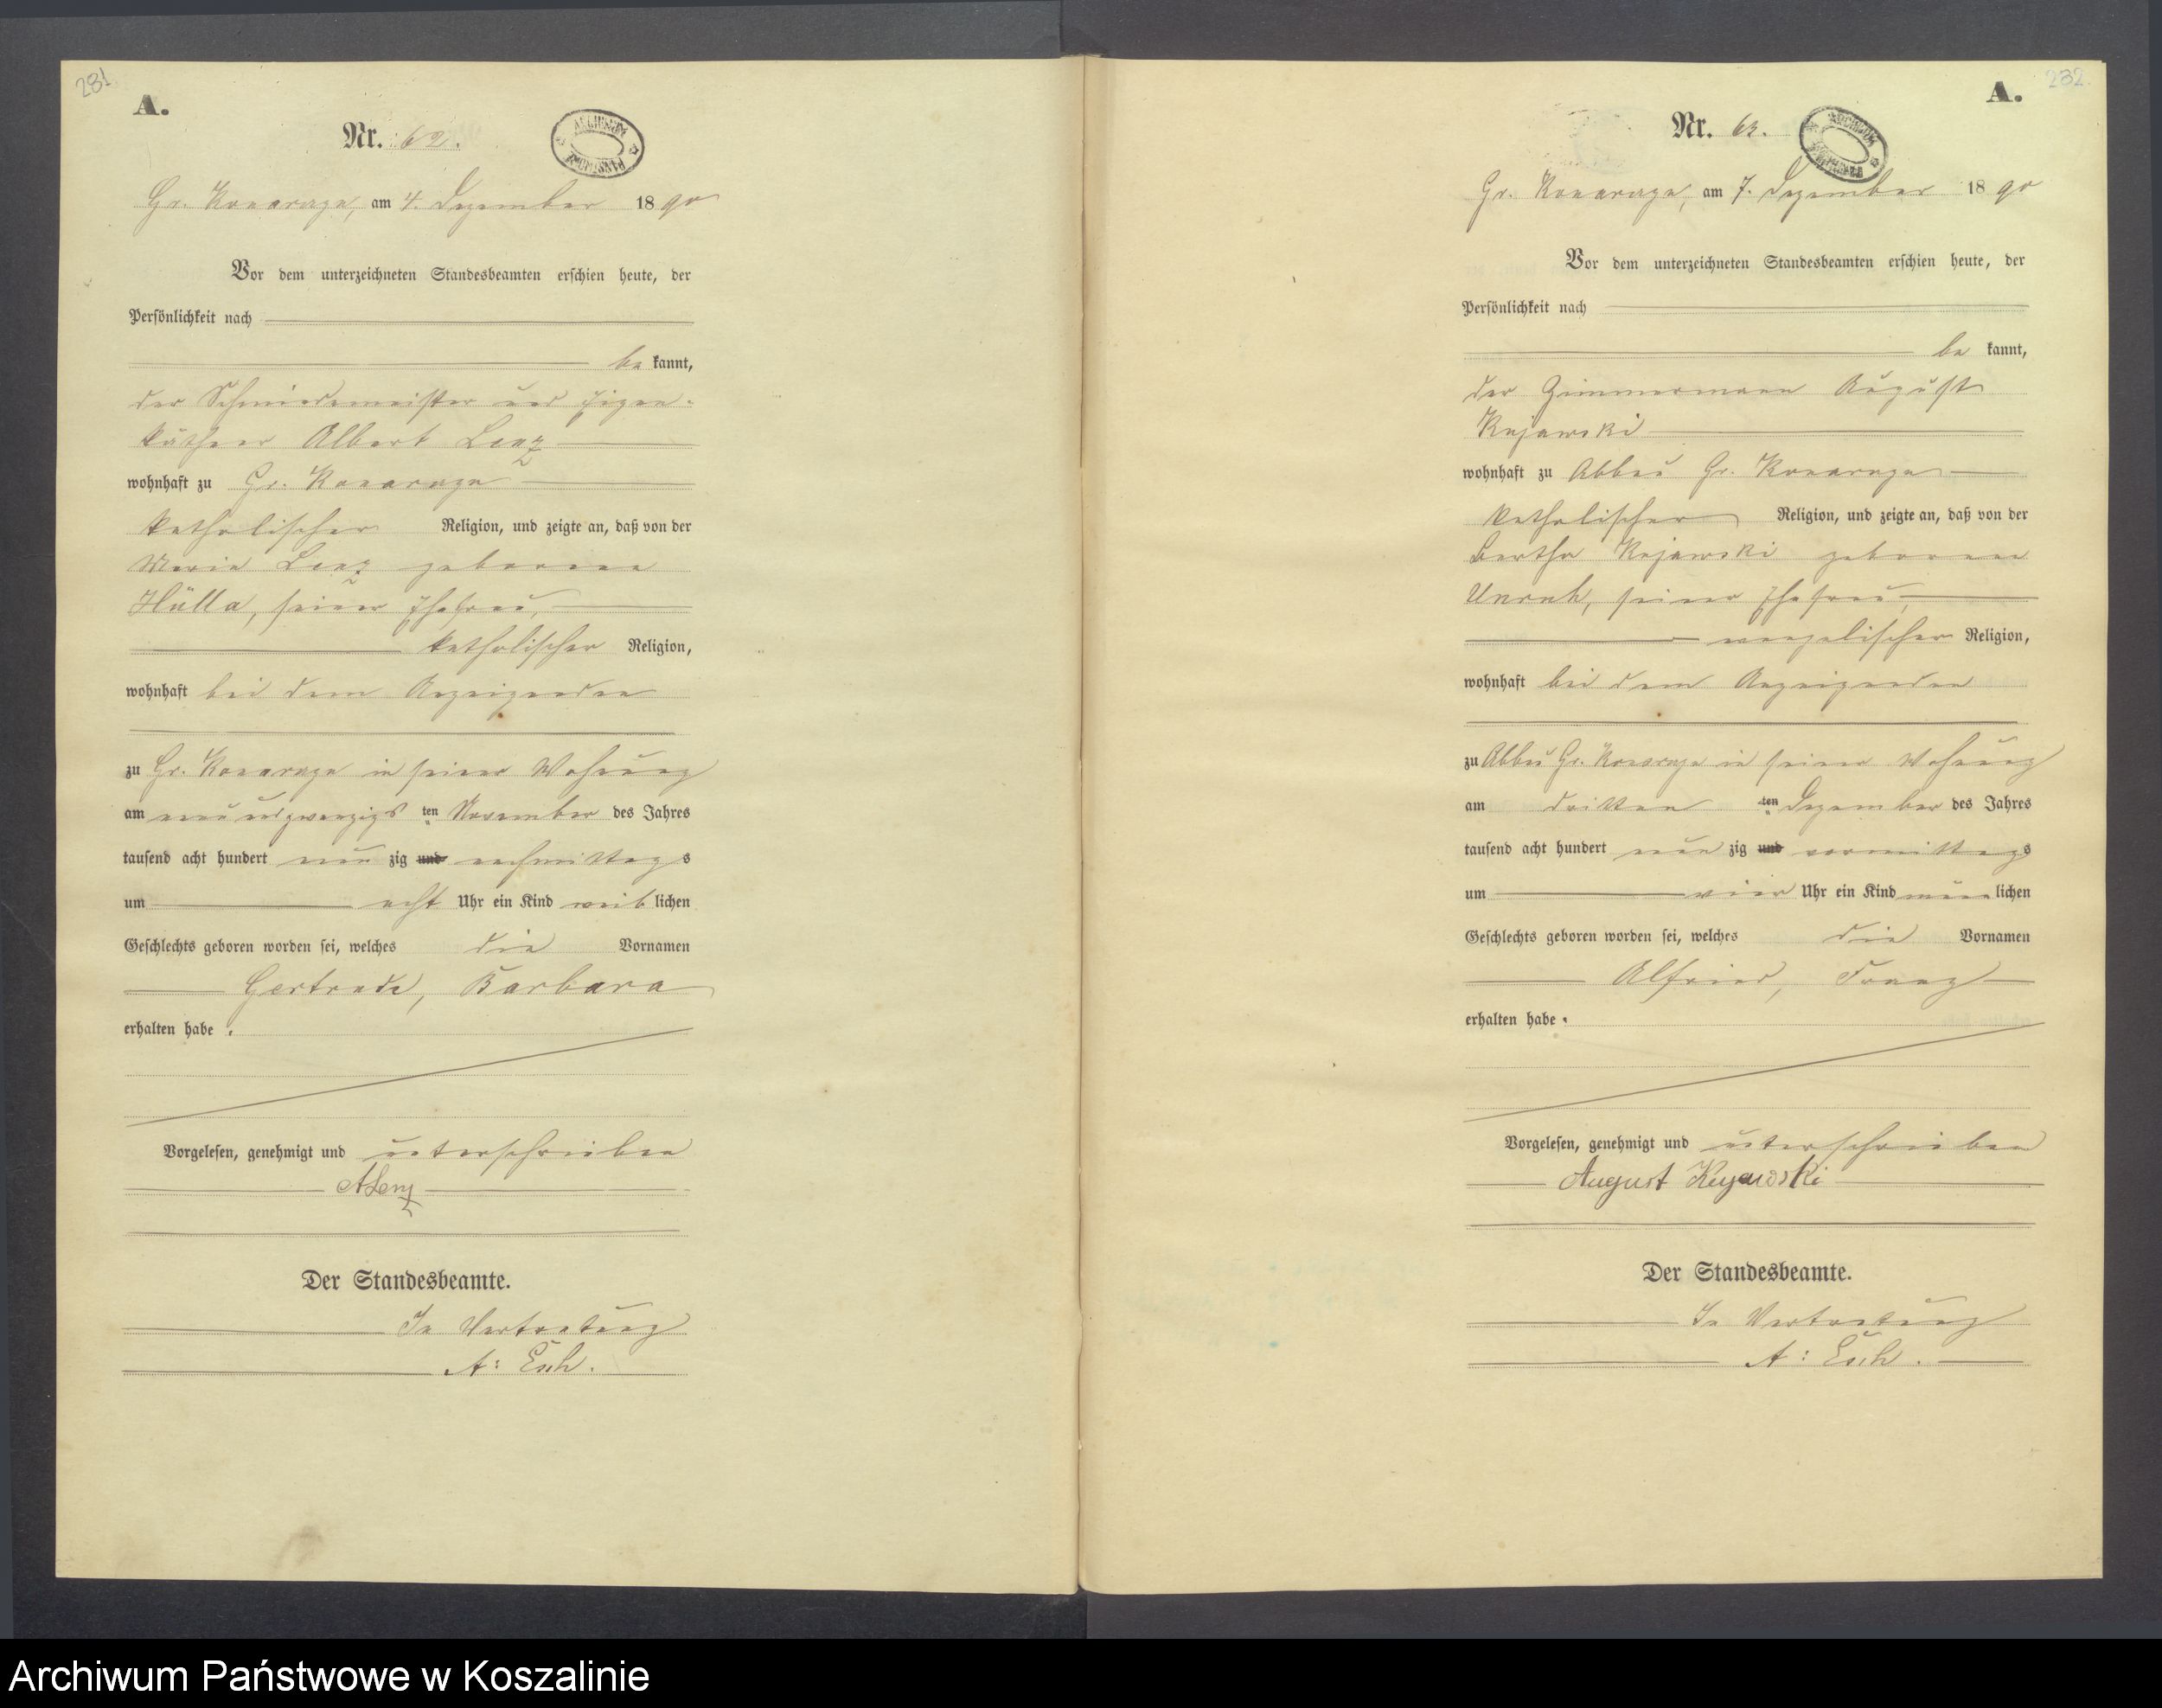 281
A.
Nr. 62.
ARCHIWUM PAŃSTWOWE
Gr. Konarczyn, am 4. Dezember 1890
Vor dem unterzeichneten Standesbeamten erschien heute, der
Persönlichkeit nach
be kannt,
der Schmiedemeister und Eigen-
käthner Albert Lenz
wohnhaft zu Gr. Konarczyn
katholischer Religion, und zeigte an, daß von der
Maria Lenz geborene
Hülla, seiner Ehefrau,
katholischer Religion,
wohnhaft bei dem Anzeigenden
zu Gr. Konarczyn in seiner Wohnung
am neunundzwanzigs ten November des Jahres
tausend acht hundert neun zig und nachmittags
um acht Uhr ein Kind weib lichen
Geschlechts geboren worden sei, welches die Vornamen
Gertrude, Barbara
erhalten habe.
Vorgelesen, genehmigt und unterschrieben
A Lenz
Der Standesbeamte.
In Vertretung
A: Esch.
232
A.
Nr. 63.
ARCHIWUM PAŃSTWOWE
Gr. Konarczyn, am 7. Dezember 1890
Vor dem unterzeichneten Standesbeamten erschien heute, der
Persönlichkeit nach
be kannt,
der Zimmermann August
Kujawski
wohnhaft zu Abbau Gr. Konarczyn
katholischer Religion, und zeigte an, daß von der
Bertha Kujawski geborene
Unruh, seiner Ehefrau,
evangelischer Religion,
wohnhaft bei dem Anzeigenden
zu Abbau Gr. Konarczyn in seiner Wohnung
am dritten ten Dezember des Jahres
tausend acht hundert neun zig und vormittags
um vier Uhr ein Kind männ lichen
Geschlechts geboren worden sei, welches die Vornamen
Alfried, Franz
erhalten habe.
Vorgelesen, genehmigt und unterschrieben
August Kujawski
Der Standesbeamte.
In Vertretung
A: Esch.
Archiwum Państwowe w Koszalinie